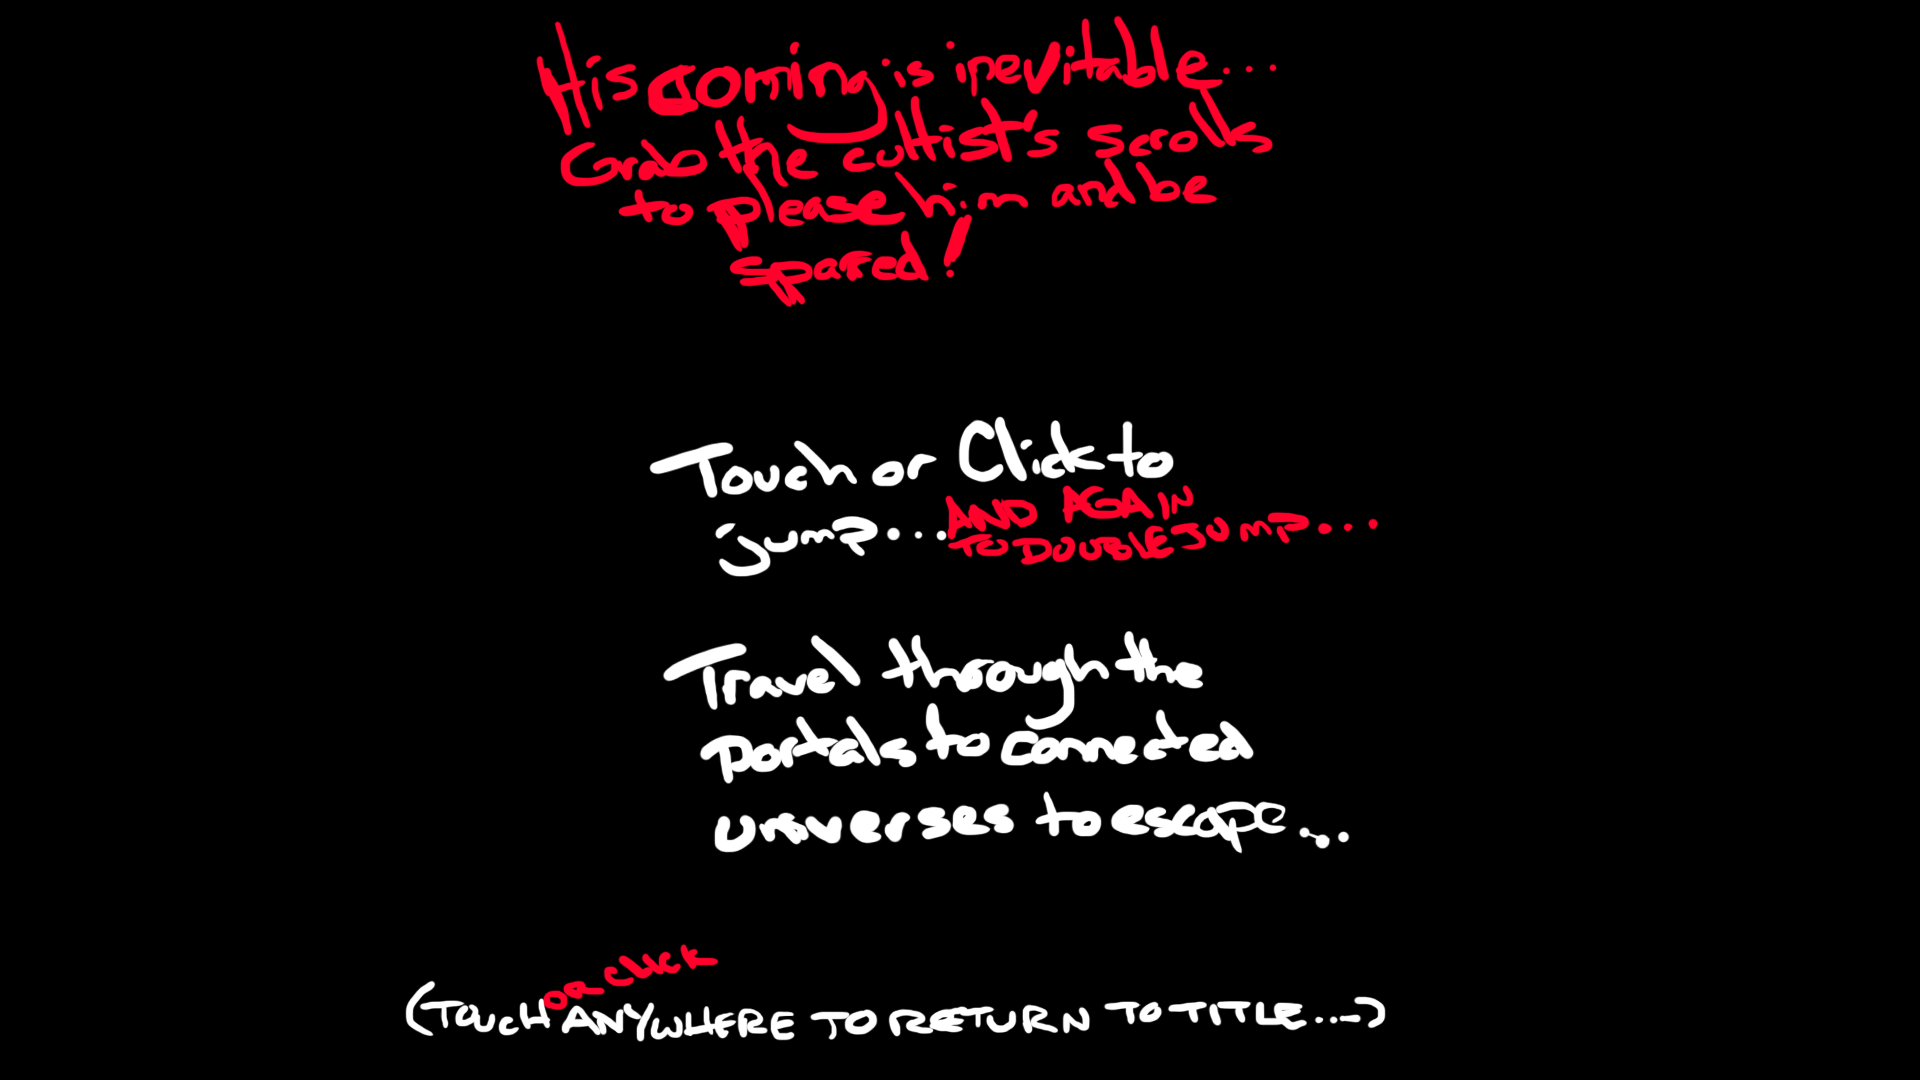 His coming is inevitable...
Grab the cultist's scrolls
to please him and be
spared!
Touch or Click to
jump... AND AGAIN
TO DOUBLE JUMP...
Travel through the
portals to connected
universes to escape...
OR CLICK
(TOUCH ANYWHERE TO RETURN TO TITLE...)